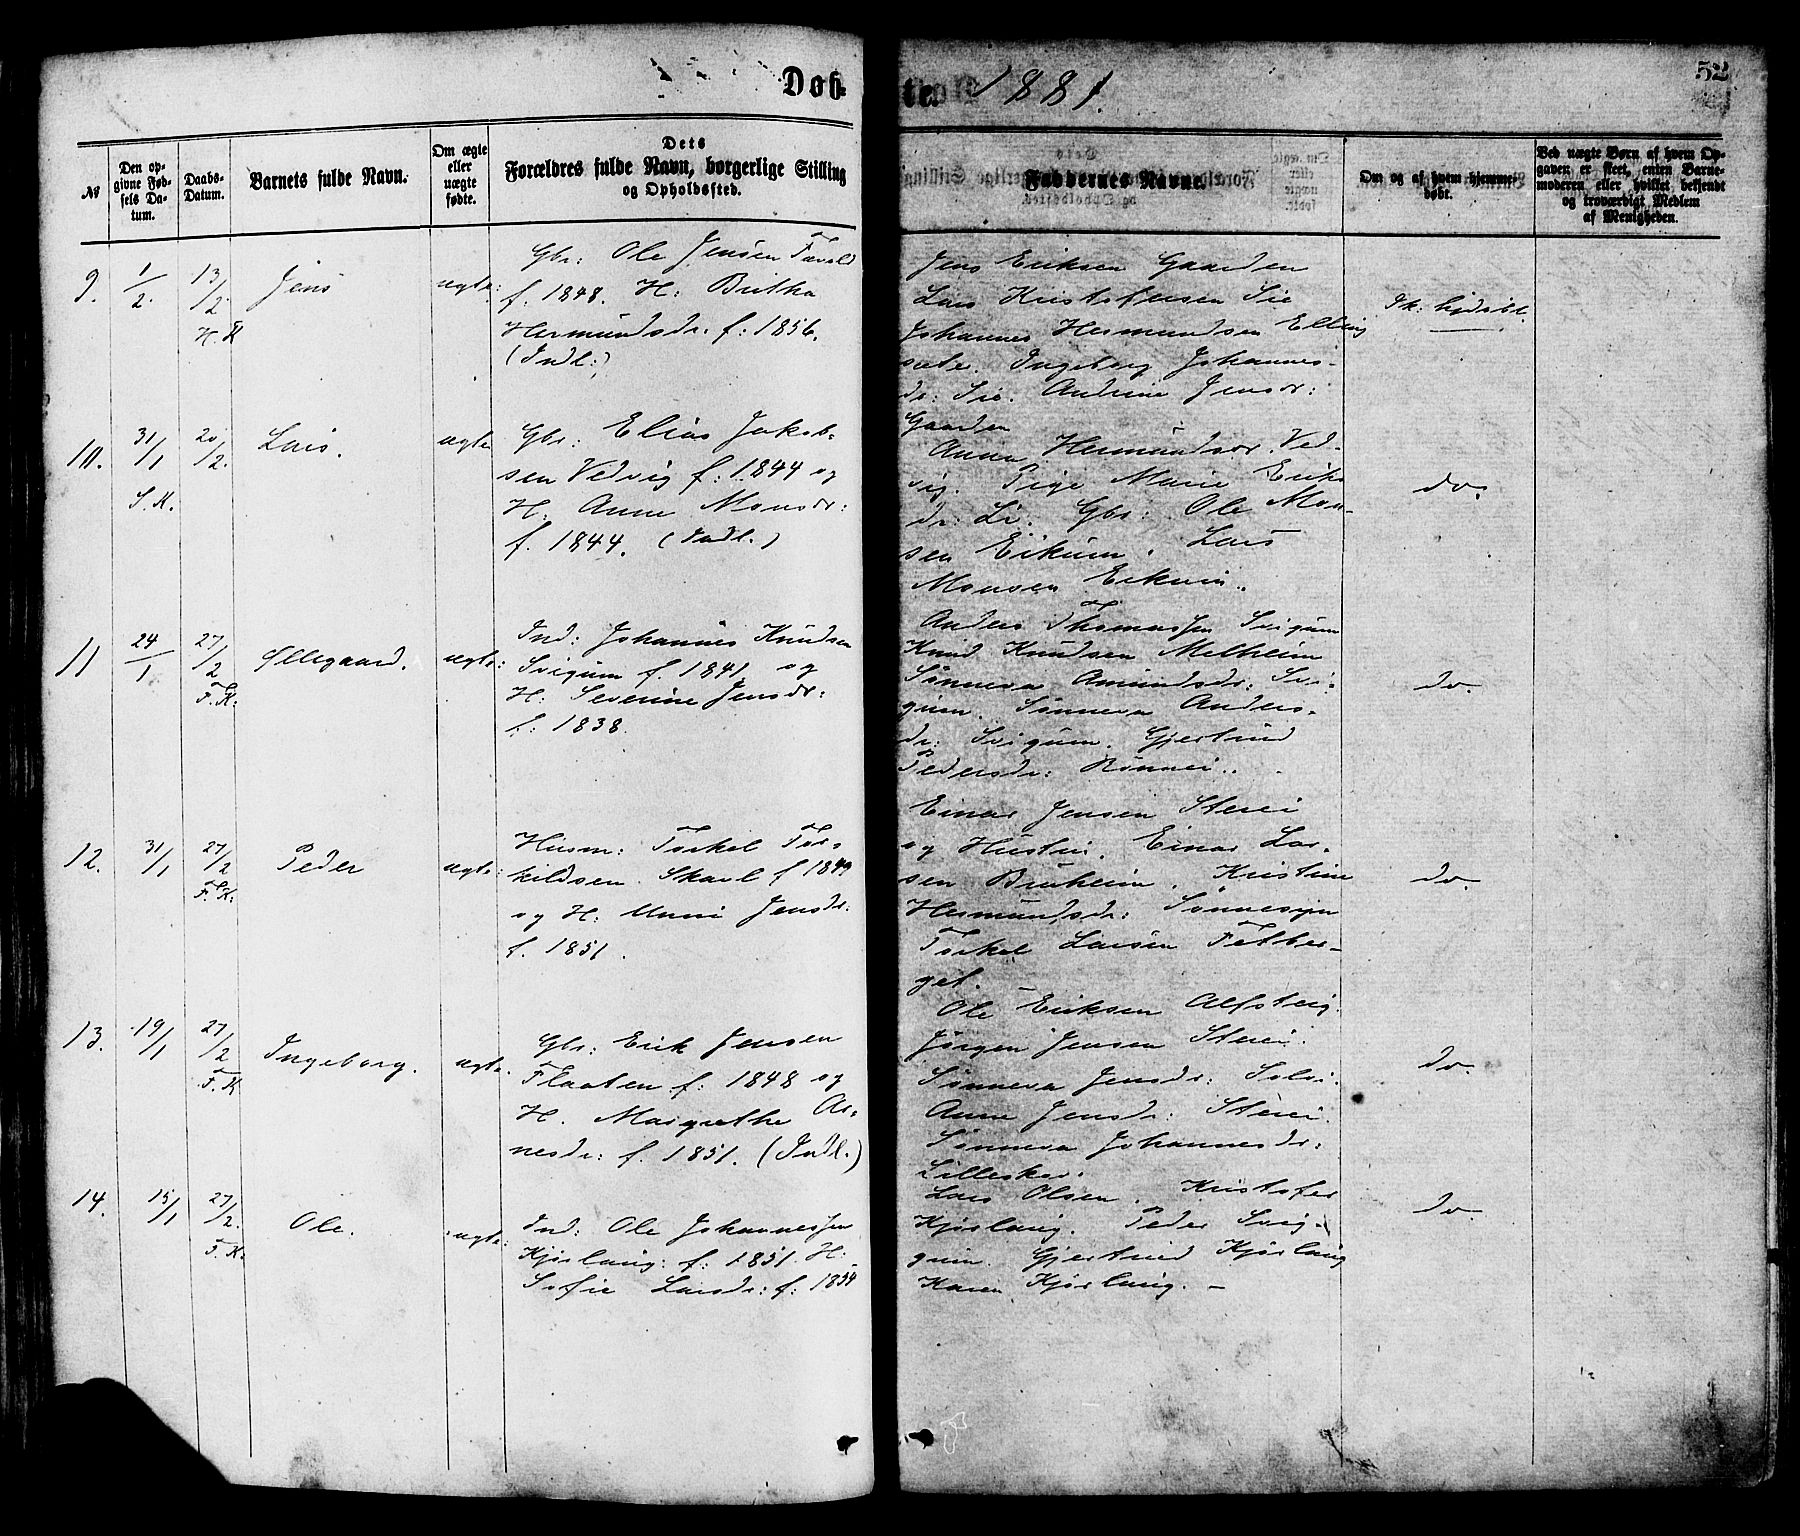 Døb-
te. 1881.
52
№
Den op-
givne Fød-
sels Da-
tum.
Daabs-
Datum.
Barnets fulde Navn.
Om ægte
eller
uægte
fødte.
Dets
Forældres fulde Navn, borgerlige Stilling
og Opholdssted.
Faddernes Navne.
Om og af hvem hjemme-
døbt.
Ved uægte Børn af hvem Op-
gaven er skeet, enten Barne-
moderen eller hvilket bekjendt
og troværdigt Medlem
af Menigheden.
9.
1/2.
13/2
H. K
Jens
ægte:
Gbr: Ole Jensen
f. 1848. H: Britha
Hermundsdr. f: 1856.
(Indl:)
Jens Eriksen Gaarden
Lars Kristofersen Sie
Johannes Hermundsen Elling
sæte. Ingeborg Johannes-
dr: Sie. Andrine Jensdr:
Gaarden
Ik: hjdøbt.
10.
31/1
S. K.
20/2.
Lars.
ægte
Gbr: Elias Jakob-
sen Vedvig f: 1844 og
H. Anne Monsdr:
f. 1844. (Indl.)
Anna Hermundsdr. Ved-
vig. Pige Marie Eriks
dr: Li. Gbr: Ole Mon-
sen Eikum. Lars
Monsen Eikum.
do.
11
24/1
27/2
F. K.
Øllegaard.
ægte:
Ind: Johannes Knudsen
Svigum f. 1841. og
H: Severine Jensdr:
f: 1838.
Anders Thomassen Svigum
Knud Knudsen Melheim
Sønneva Amundsdr: Svi-
gum. Sønneva Anders-
dr: Svigum. Gjertrud
Pedersdr: Rønnei.
do.
12.
31/1
27/2
F. K.
Peder
ægte:
Husm: Torkel Tor-
kildsen Skaar f 1849
og H. Unni Jensdr:
f. 1851.
Einar Jensen Steiei
og Hustru. Einar Lar-
sen Bruheim. Kristine
Hermundsdr: Sønnesyn
Torkel Larsen Fetber-
get.
do.
13.
19/1
27/2
F. K
Ingeborg.
ægte
Gbr: Erik Jensen
Flaaten f: 1848 og
H. Margrethe Ar-
nesdr: f. 1851. (Indl.)
Ole Eriksen Alfsteig.
Jørgen Jensen Steiei.
Sønneva Jensdr: Solvi.
Anne Jensdr: Steiei.
Sønneva Johannesdr:
Lilleskar.
do.
14.
15/1
27/2.
F. K.
Ole.
ægte:
Ind: Ole Johannessen
Kjørlaug: f: 1851. H:
Sofie Larsdr: f: 1854
Lars Olsen. Kristofer
Kjørlaug. Peder Svig-
gum. Gjertrud Kjørlaug
Karen Kjørlaug. –
do.